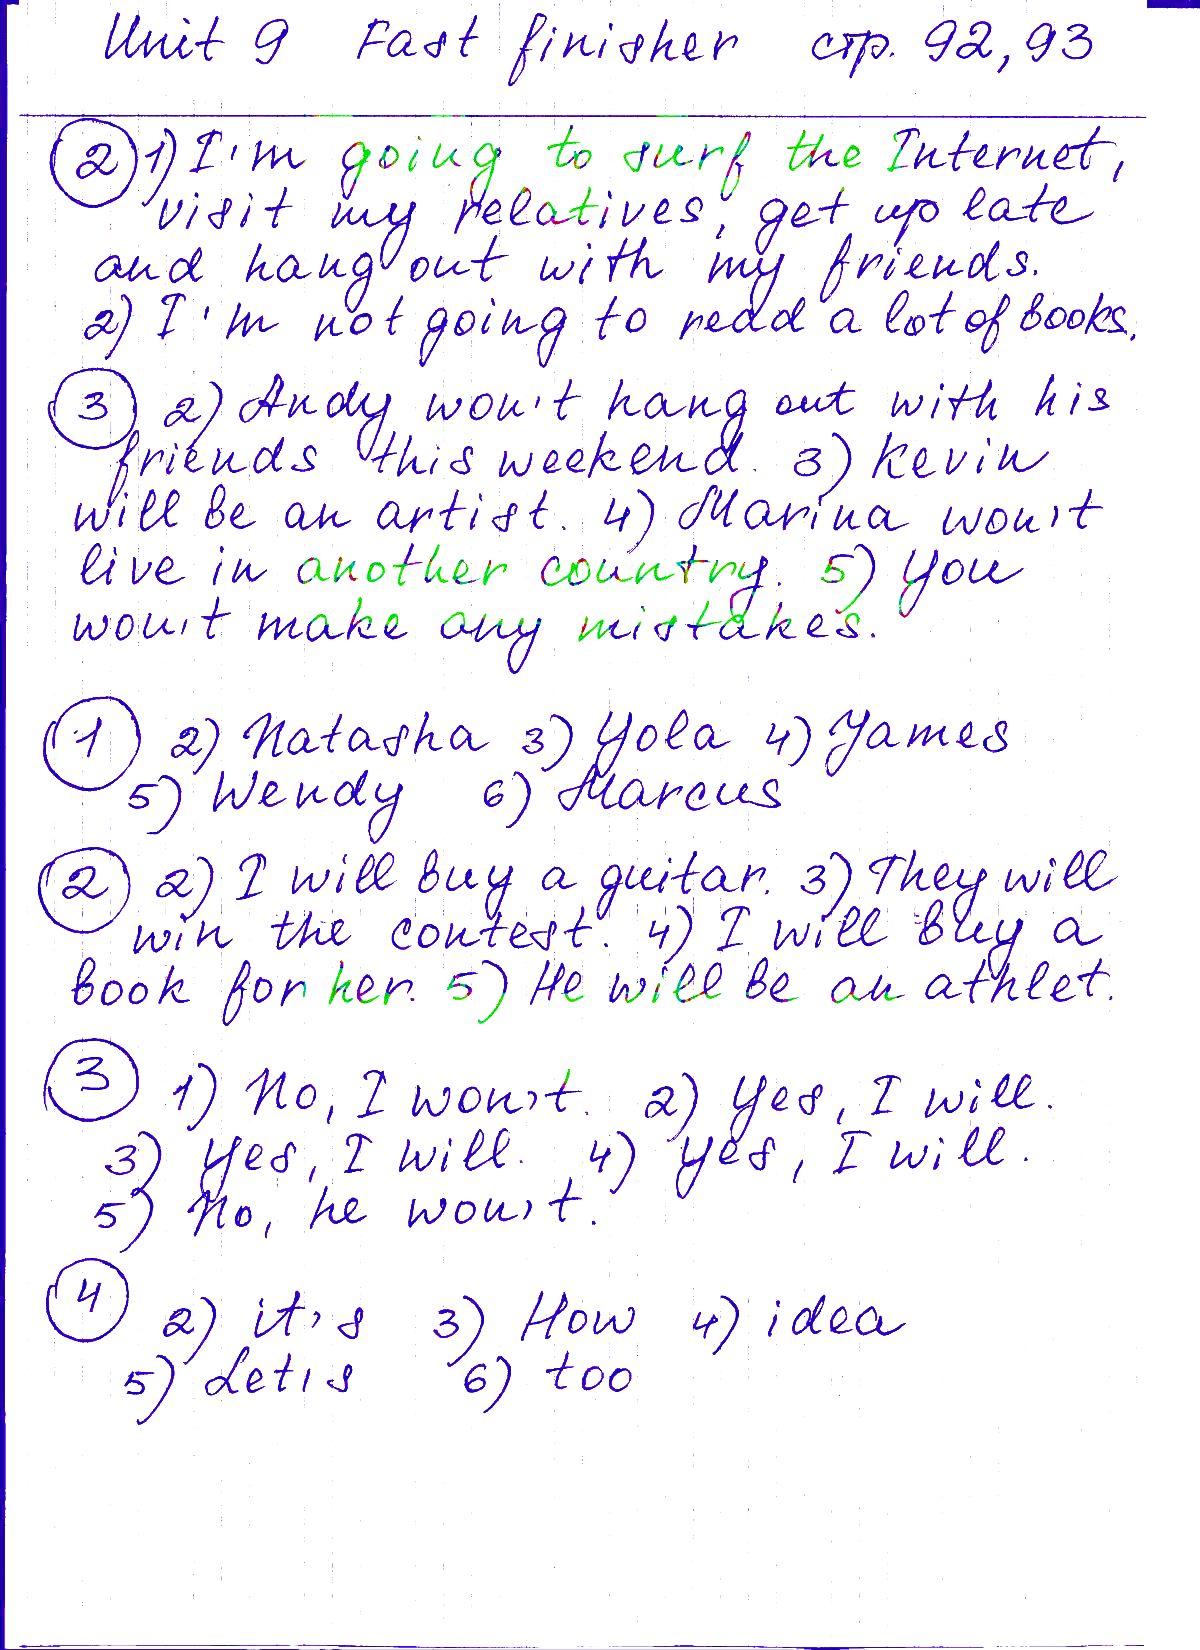 Unit 9 Fast finisher стр. 92, 93
2 1) I'm going to surf the Internet,
visit my relatives, get up late
and hang out with my friends.
2) I'm not going to read a lot of books.
3 2) Andy won't hang out with his
friends this weekend. 3) Kevin
will be an artist. 4) Marina won't
live in another country. 5) You
won't make any mistakes.
1 2) Natasha 3) Yola 4) James
5) Wendy 6) Marcus
2 2) I will buy a guitar. 3) They will
win the contest. 4) I will buy a
book for her. 5) He will be an athlet.
3 1) No, I won't. 2) Yes, I will.
3) Yes, I will. 4) Yes, I will.
5) No, he won't.
4 2) it's 3) How 4) idea
5) Let's 6) too